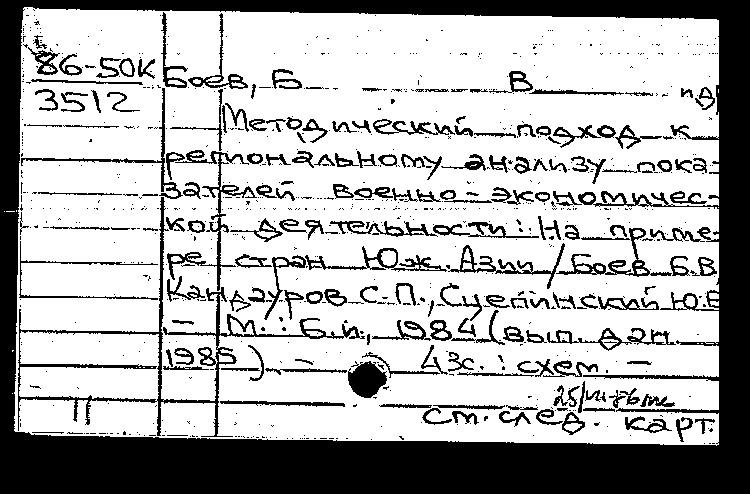 86-50К
3512
Боев, Б В
Методический подход к
региональному анализу пока-
зателей военно-экономичес-
кой деятельности: На приме-
ре стран Юж. Азии / Боев Б.В,
Кандауров С.П., Сцепинский Ю.Е
.— М.: Б.и., 1984 (вып. дан.
1985). — 43с. : схем. —
11
см. след. карт.